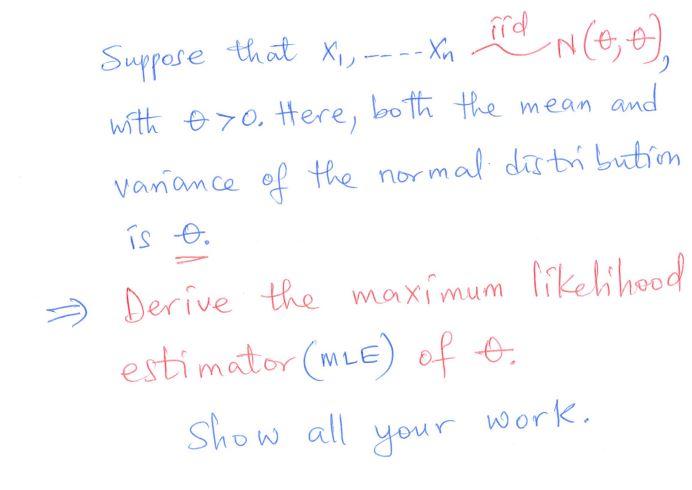 Suppose that X₁, ----- Xn iid ~ N(θ, θ),
with θ > 0. Here, both the mean and
variance of the normal distribution
is θ.
⇒ Derive the maximum likelihood
estimator (MLE) of θ.
Show all your work.